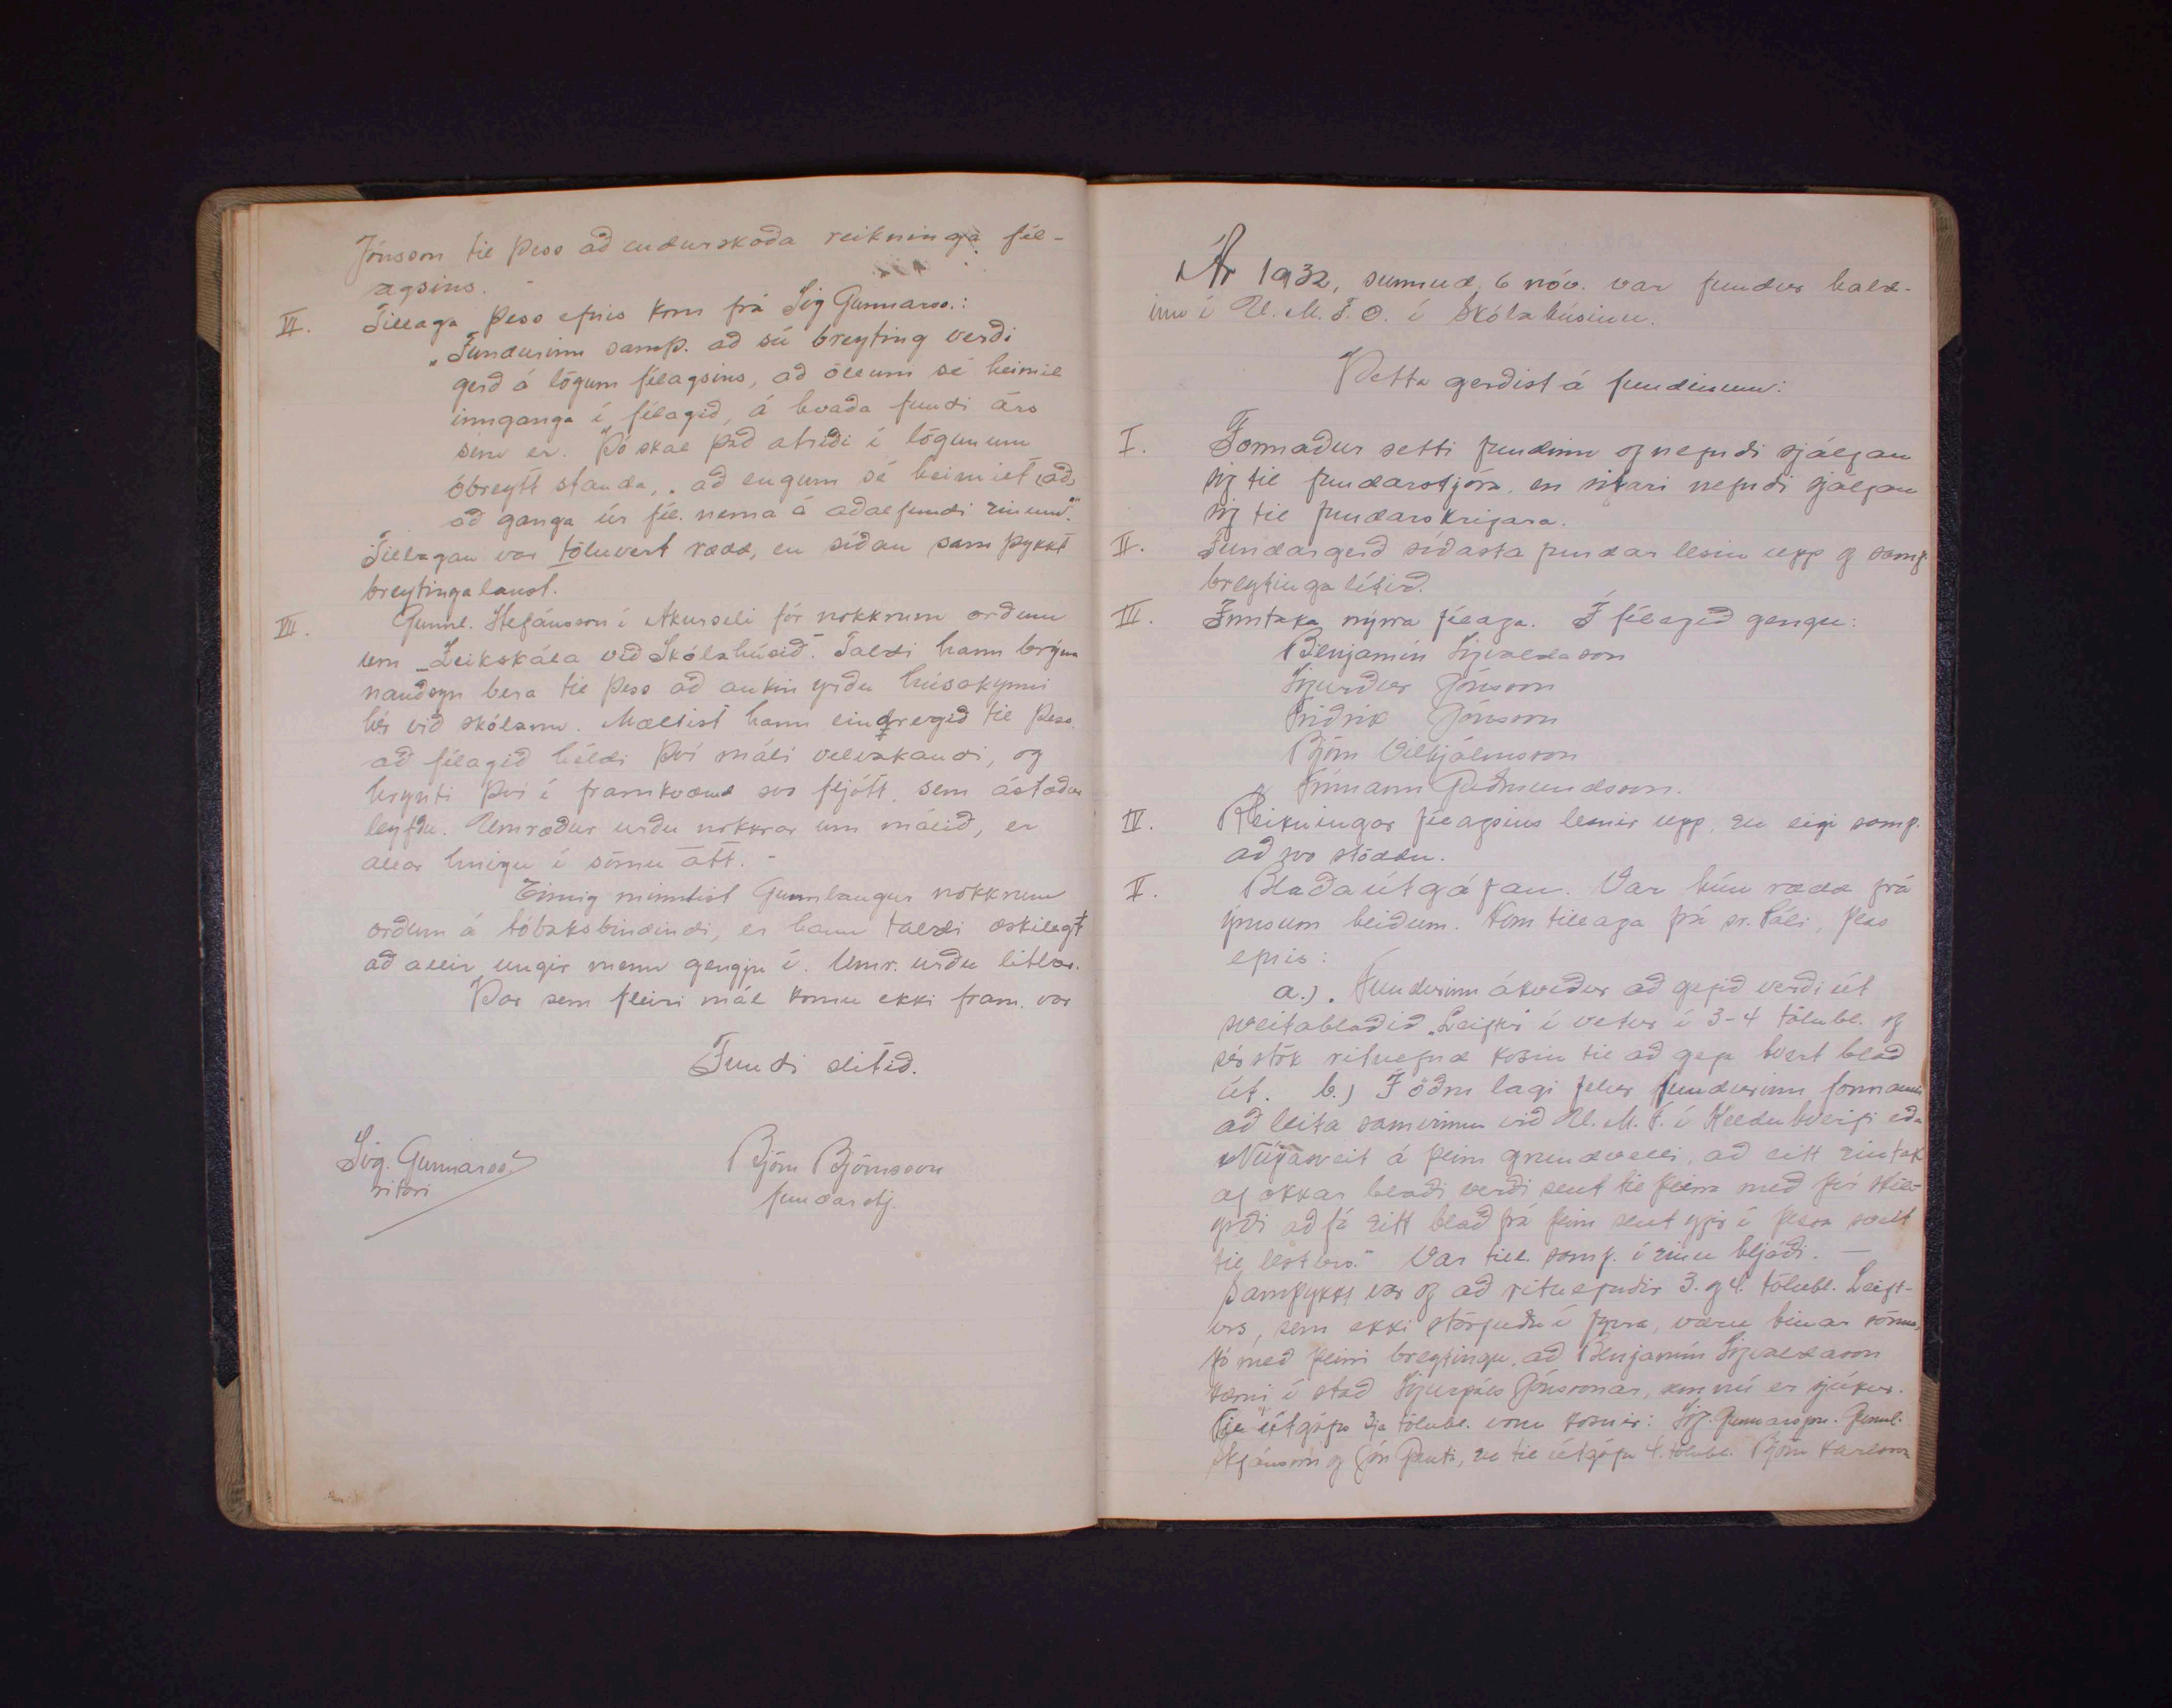 Jónsson til þess að endurskoða reikninga fél-
agsins.
VI. Tillaga þess efnis kom frá Sig Gunnarss.:
„Fundurinn samþ. að sú breyting verði
gerð á lögum félagsins, að öllum sé heimil
innganga í félagið, á hvaða fundi árs
sem er. Þó skal það atriði í lögunum
óbreytt standa, „að engum sé heimilt að,
að ganga úr fél. nema á aðalfundi einum“.
Tillagan var töluvert rædd, en síðan samþykkt
breytingalaust.
VII. Gunnl. Stefánsson í Akurseli fór nokkrum orðum
um „Leikskála við Skólahúsið“. Taldi hann brýna
nauðsyn bera til þess að aukin yrðu húsakynni
hér við skólann. Mæltist hann eindregið til þess
að félagið héldi því máli velvakandi, og
hrynti því í framkvæmd svo fljótt, sem ástæður
leyfðu. Umræður urðu nokkrar um málið, er
allar hnigu í sömu átt. -
Einnig minntist Gunnlaugur nokkrum
orðum á tóbaksbindindi, er hann taldi æskilegt
að allir ungir menn gengju í. Umr. urðu litlar.
Þar sem fleiri mál komu ekki fram, var
Fundi slitið.
Sig. Gunnarss.
ritari
Björn Björnsson
fundarstj.
Ár 1932, sunnud. 6 nóv. var fundur hald-
inn í U.M.F.Ö. í Skólahúsinu.
Þetta gerðist á fundinum:
I. Formaður setti fundinn og nefndi sjálfan
sig til fundarstjóra, en ritari nefndi sjálfan
sig til fundarskrifara.
II. Fundargerð síðasta fundar lesin upp og samþ.
breytingalítið.
III. Inntaka nýrra félaga. Í félagið gengu:
Benjamín Sigvaldason
Sigurður Jónsson
Friðrik Jónsson
Björn Vilhjálmsson
Finnann Guðmundsson.
IV. Reikningar félagsins lesnir upp, en eigi samþ.
að svo stöddu.
V. Blaðaútgáfan. Var hún rædd frá
ýmsum hliðum. Kom tillaga frá sr. Páli, þess
efnis:
a.) „Fundurinn ákveður að gefið verði út
sveitablaðið „Leiftur“ í vetur í 3-4 tölubl. og
sérstök ritnefnd kosin til að gefa hvert blað
út. b.) Í öðru lagi felur fundurinn formanni
að leita samvinnu við U.M.F. í Kelduhverfi eða
Núpasveit á þeim grundvelli, að eitt eintak
af okkar blaði verði sent til þeirra með því skil-
yrði að fá eitt blað frá þeim sent yfir í þessa sveit
til lesturs.“ Var till. samþ. í einu hljóði. —
Samþykkt var og að ritnefndir 3. og 4. tölubl. Leift-
urs, sem ekki störfuðu í fyrra, væru hinar sömu,
þó með þeirri breytingu, að Benjamín Sigvaldason
kæmi í stað Sigurpáls Jónssonar, sem nú er sjúkur.
Til útgáfu 3ja tölubl. voru kosnir: Sig. Gunnarsson. Gunnl.
Stefánsson og Jón Gauti, en til útgáfu 4. tölubl. Björn Karlsson